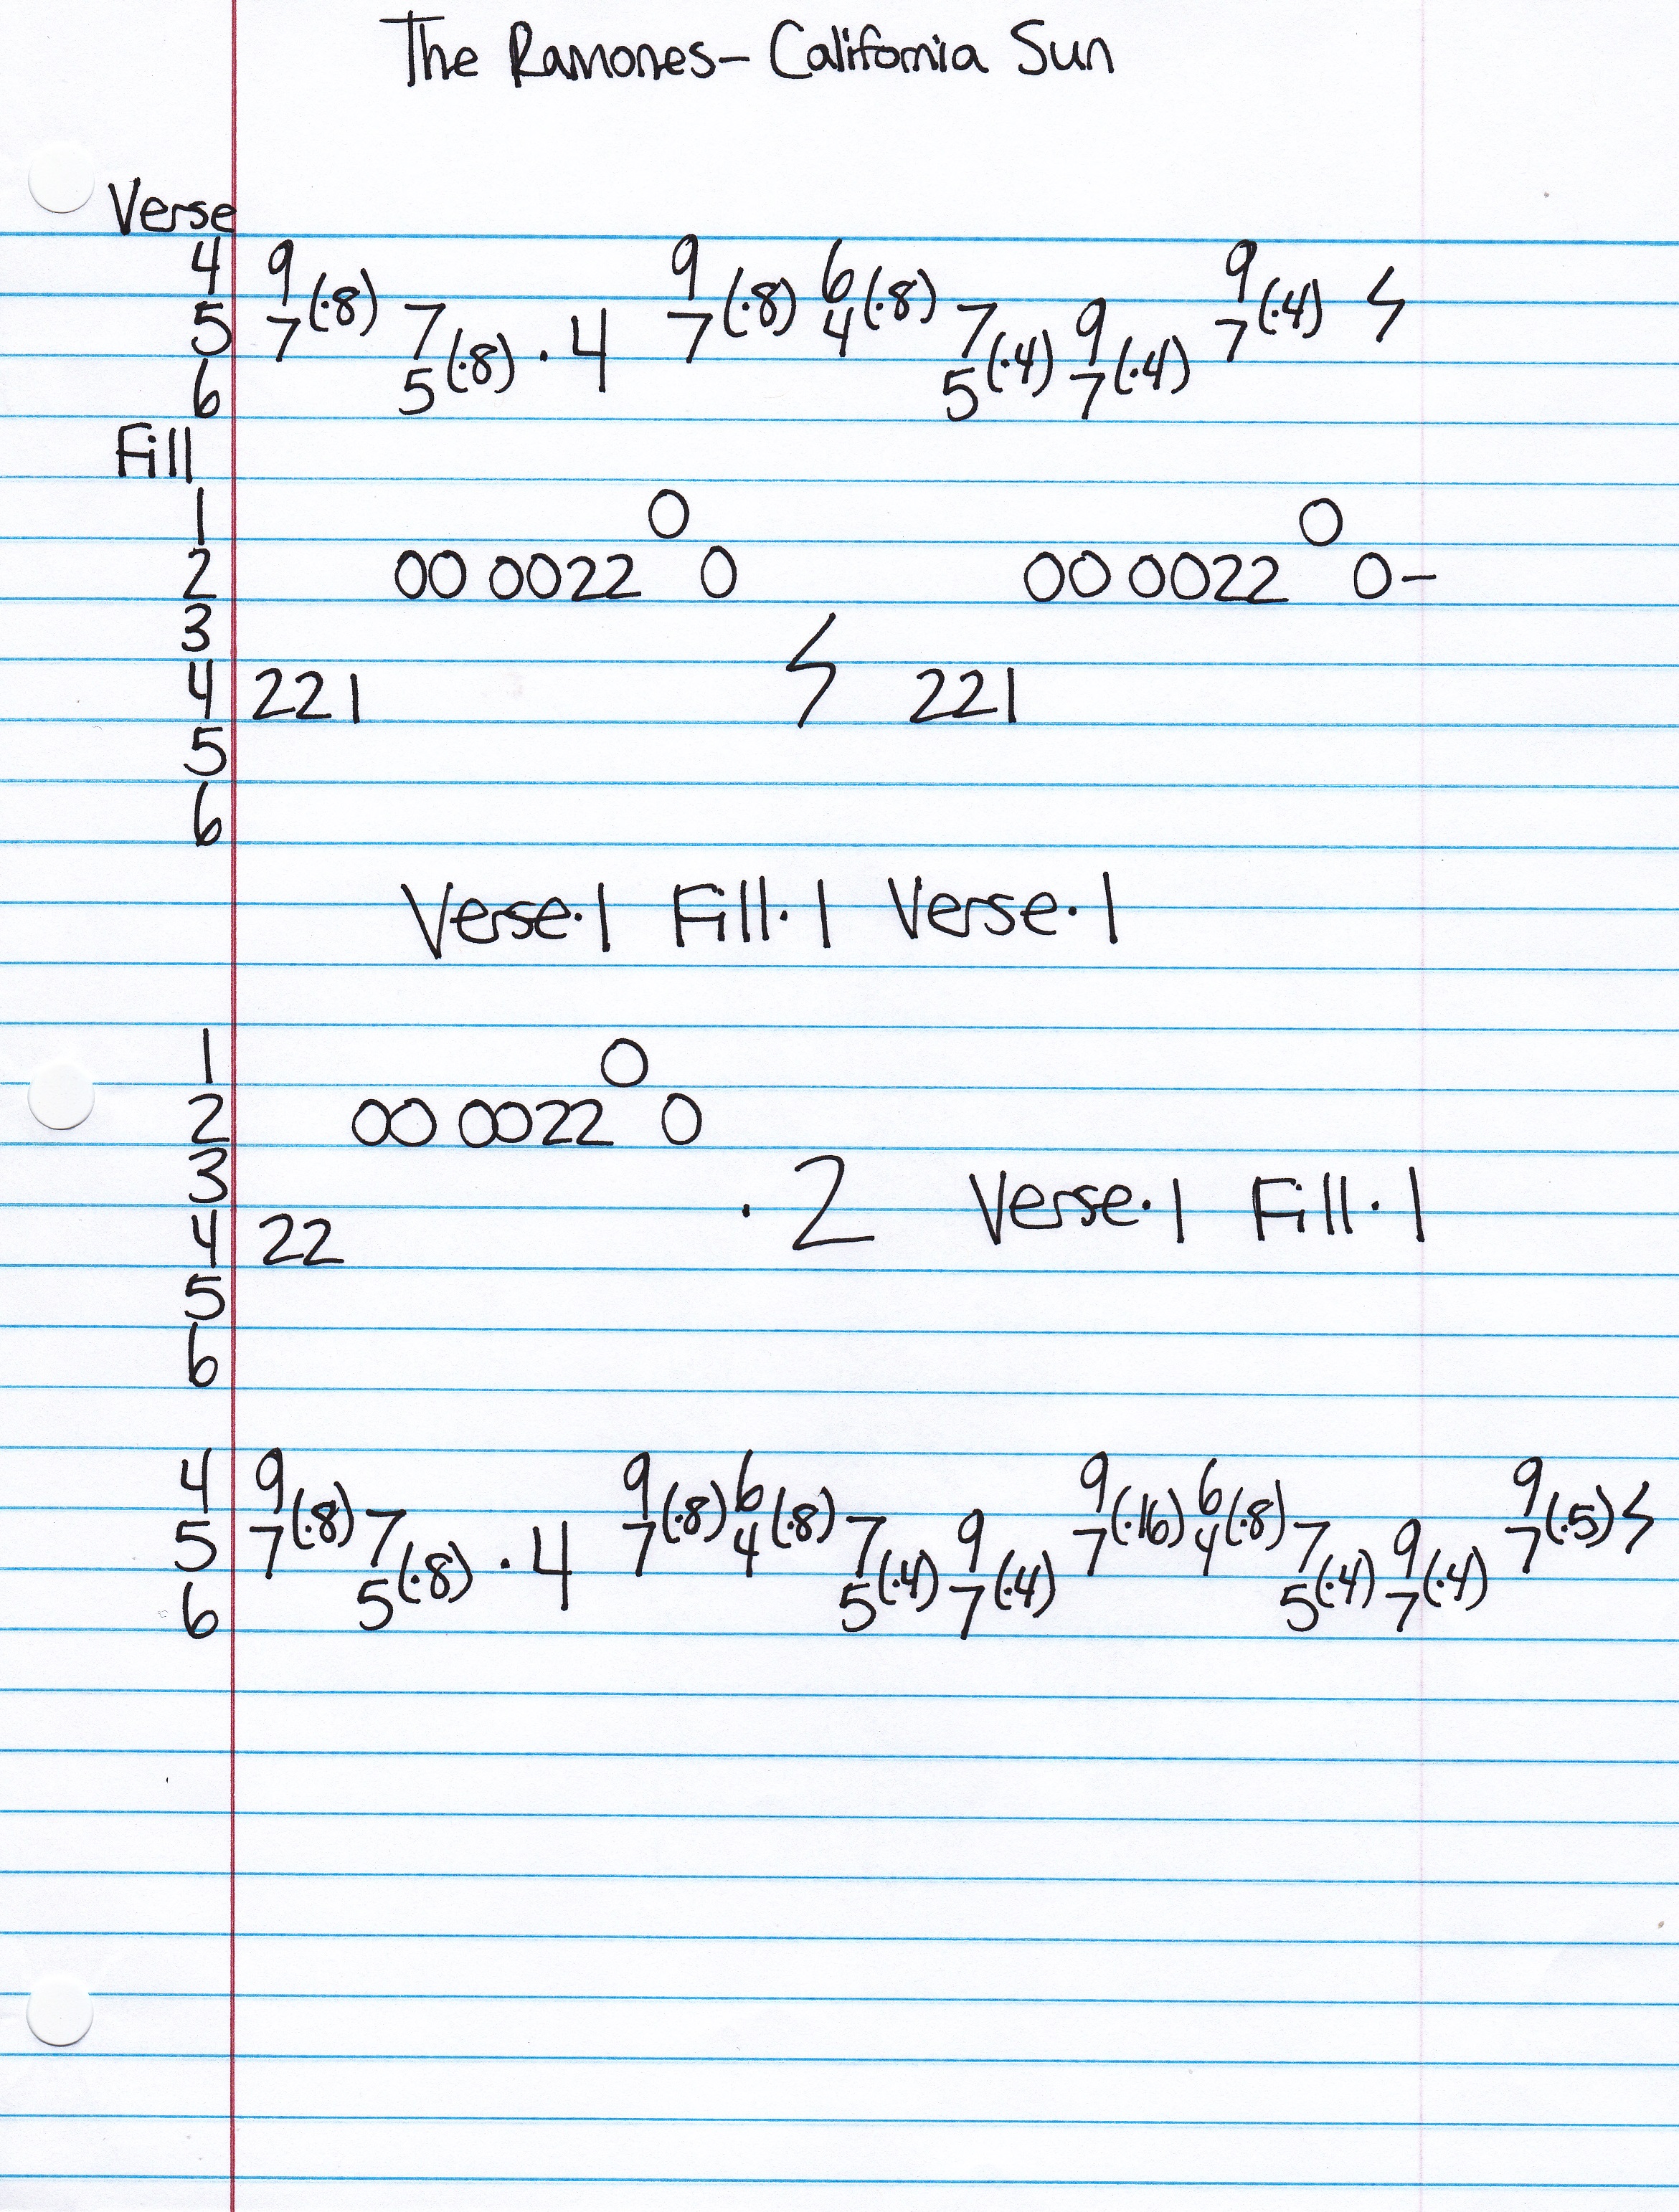 The Ramones- California Sun
Verse
4 9 9 6 9
5 7(·8) 7 7(·8) 4(·8) 7 9 7(·4) 𝄽
6 5(·8) · 4 5(·4) 7(·4)
Fill
1 0 0
2 00 0022 0 00 0022 0-
3 𝄽
4 221 221
5
6
Verse·1 Fill·1 Verse·1
1 0
2 00 0022 0
3 · 2 Verse·1 Fill·1
4 22
5
6
4 9 9 6 9 6 9
5 7(·8) 7 7(·8) 4(·8) 7 9 7(·16) 4(·8) 7 9 7(·5) 𝄽
6 5(·8) · 4 5(·4) 7(·4) 5(·4) 7(·4)